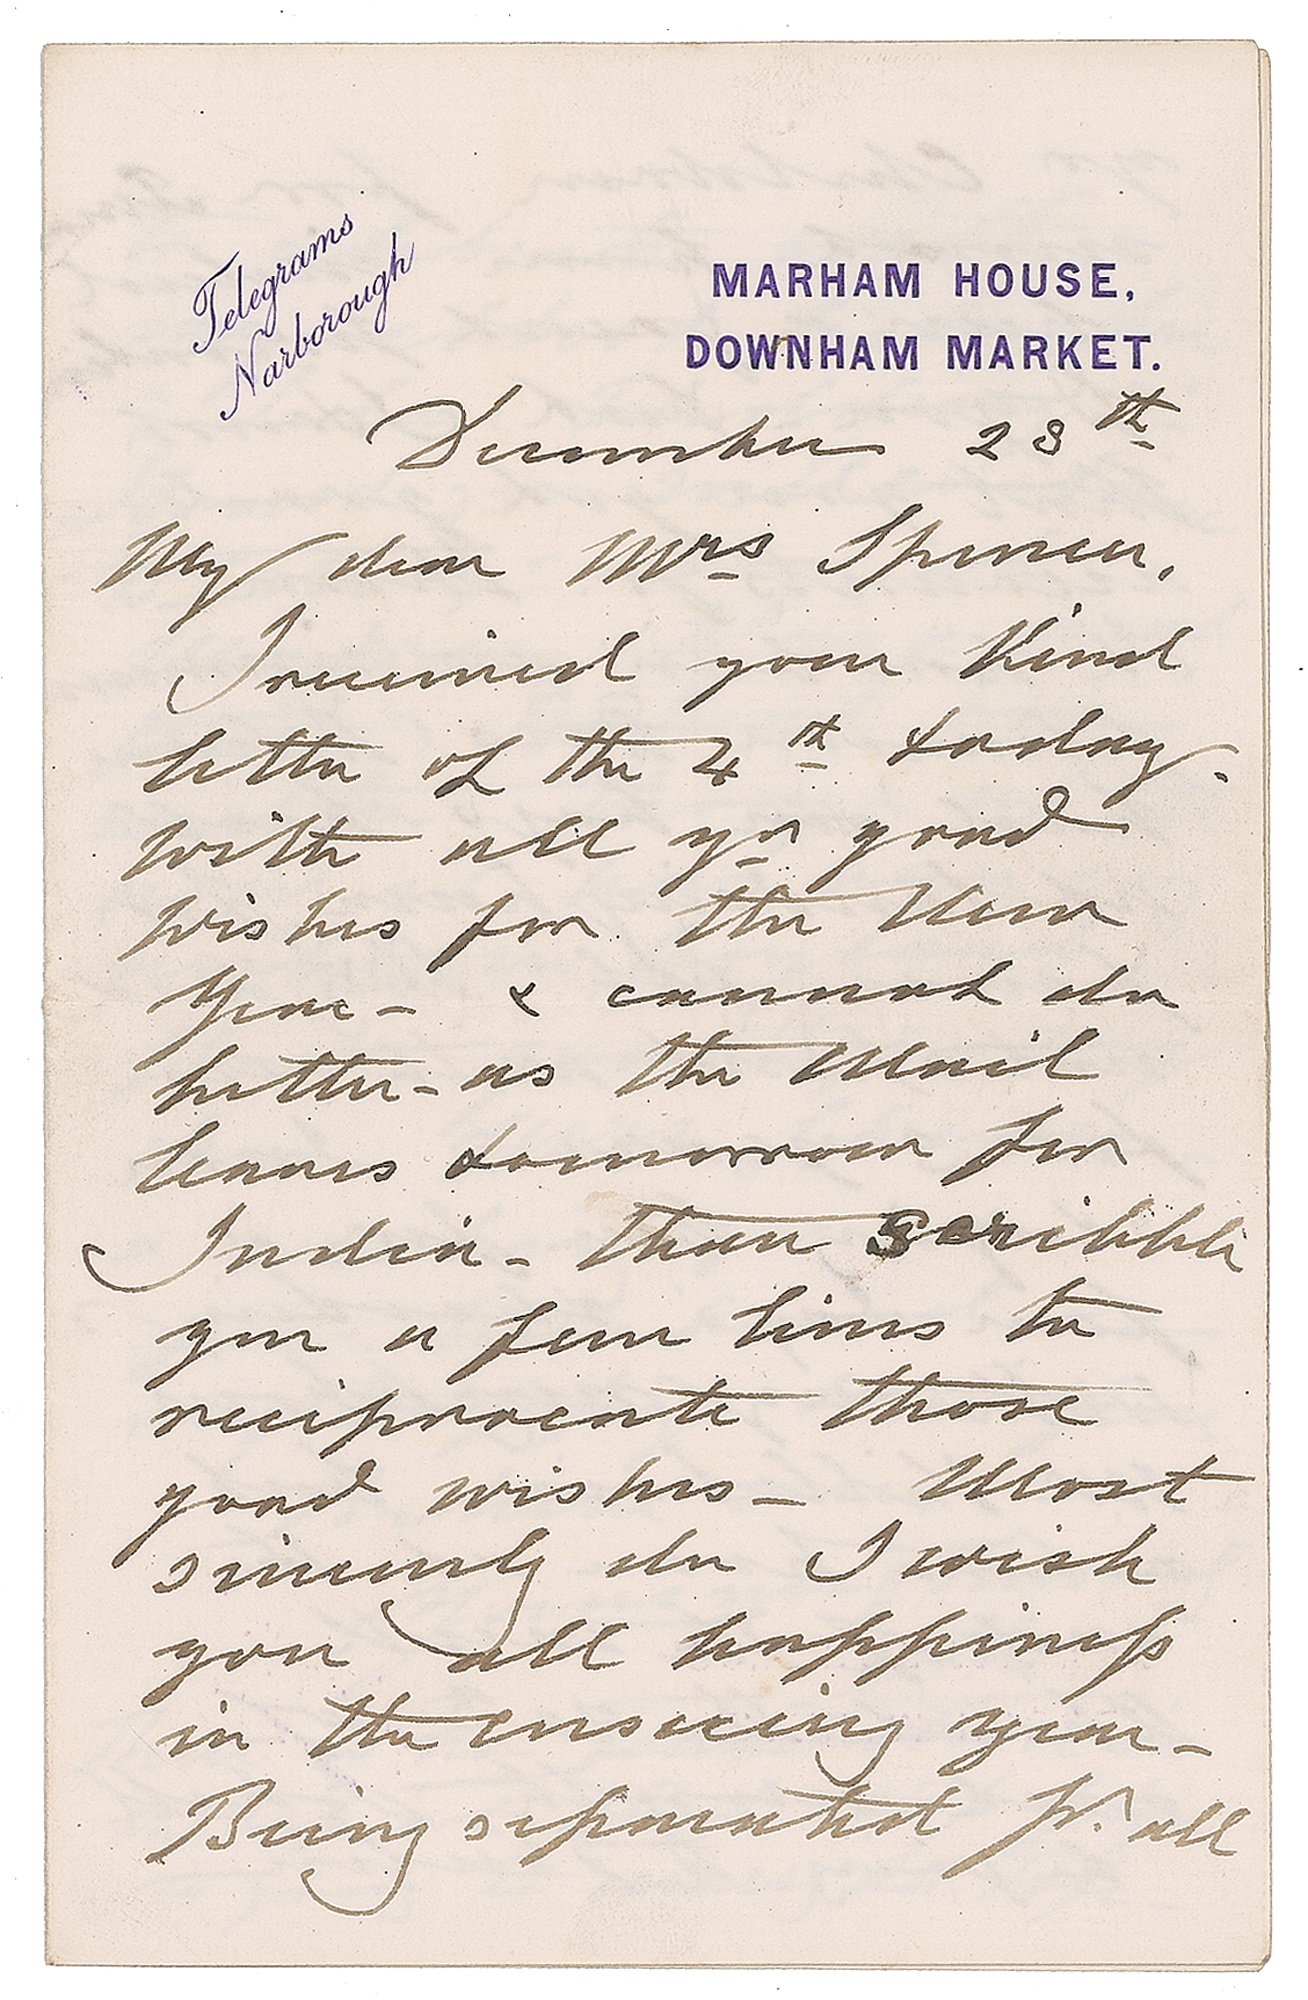 Telegrams
Narborough
MARHAM HOUSE,
DOWNHAM MARKET.
December 23th
My dear Mrs Spencer,
I received your kind
letter of the 4th today.
with all yr good
wishes for the New
Year - & cannot do
better - as the Mail
leaves tomorrow for
India - than scribble
you a few lines to
reciprocate those
good wishes - Most
sincerely do I wish
you all happiness
in the ensuing year -
Being separated fr. all